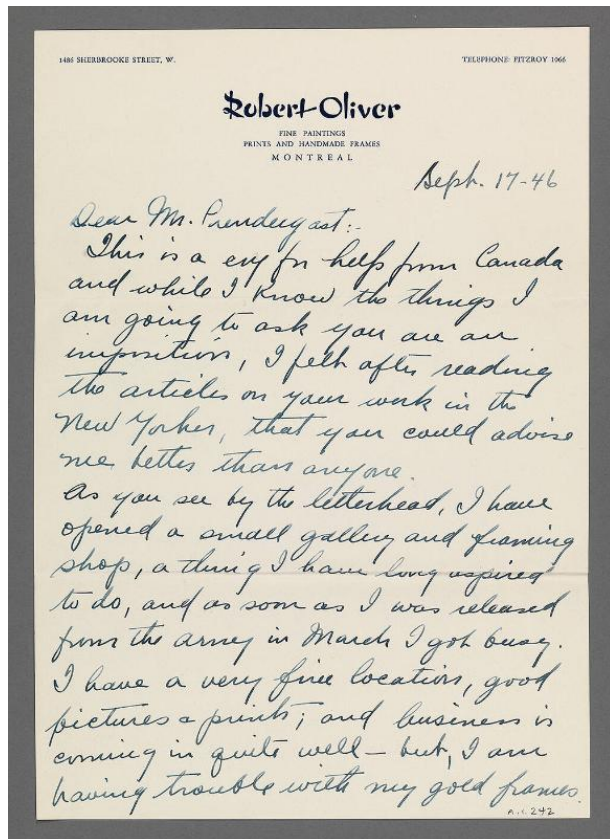 1486 SHERBROOKE STREET, W.
TELEPHONE: FITZROY 1066
Robert Oliver
FINE PAINTINGS
PRINTS AND HANDMADE FRAMES
MONTREAL
Sept. 17-46
Dear Mr. Prendergast:-
This is a cry for help from Canada
and while I know the things I
am going to ask you are an
imposition, I felt after reading
the articles on your work in the
New Yorker, that you could advise
me better than anyone.
As you see by the letterhead, I have
opened a small gallery and framing
shop, a thing I have long aspired
to do, and as soon as I was released
from the army in March I got busy.
I have a very fine location, good
pictures & prints; and business is
coming in quite well - but, I am
having trouble with my gold frames.
A.1.242